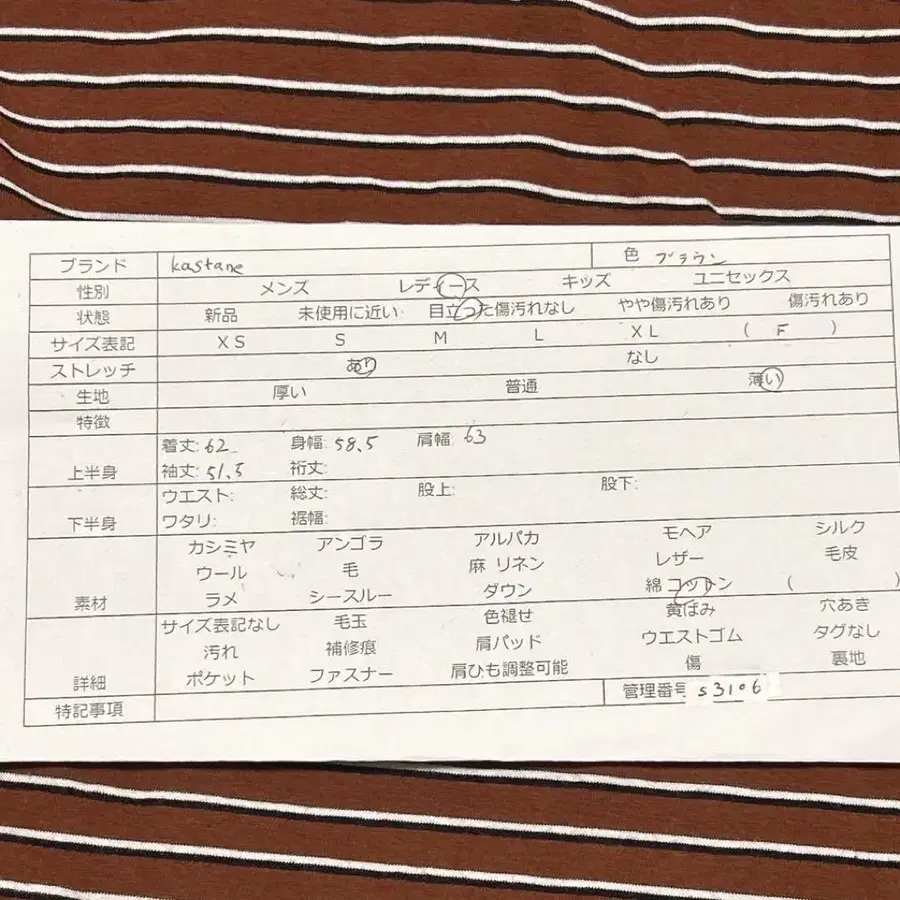 ブランド kastane 色 ブラウン
性別 メンズ レディース キッズ ユニセックス
状態 新品 未使用に近い 目立った傷汚れなし やや傷汚れあり 傷汚れあり
サイズ表記 XS S M L XL ( F )
ストレッチ あり なし
生地 厚い 普通 薄い
特徴
上半身 着丈: 62 身幅: 58.5 肩幅: 63
袖丈: 51.5 裄丈:
下半身 ウエスト: 総丈: 股上: 股下:
ワタリ: 裾幅:
素材 カシミヤ アンゴラ アルパカ モヘア シルク
ウール 毛 麻 リネン レザー 毛皮
ラメ シースルー ダウン 綿 コットン ( )
詳細 サイズ表記なし 毛玉 色褪せ 黄ばみ 穴あき
汚れ 補修痕 肩パッド ウエストゴム タグなし
ポケット ファスナー 肩ひも調整可能 傷 裏地
特記事項 管理番号 s3106